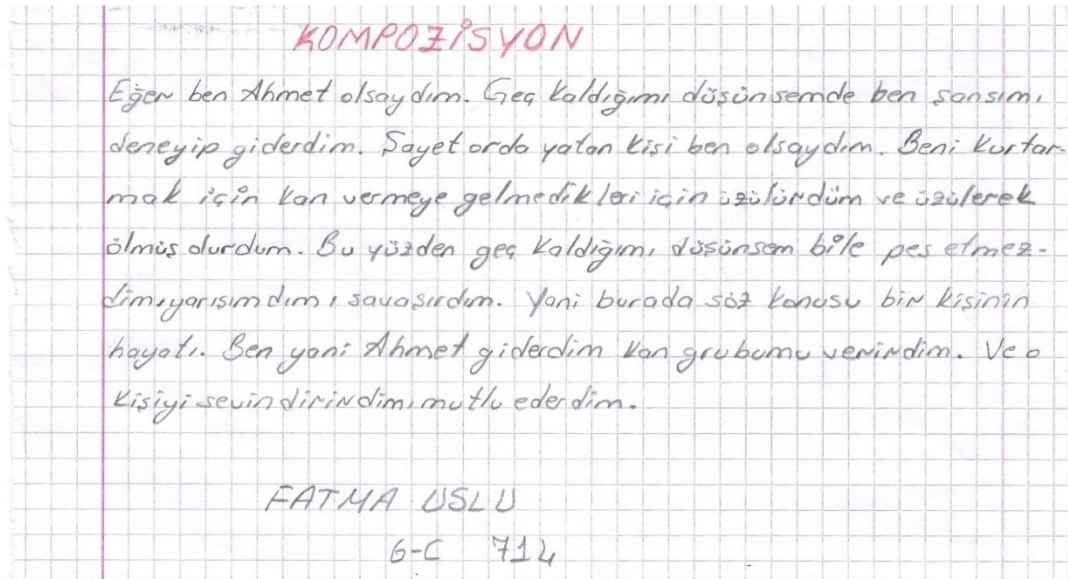 KOMPOZİSYON
Eğer ben Ahmet olsaydım. Geç kaldığımı düşünsemde ben şansımı
deneyip giderdim. Şayet orda yatan kişi ben olsaydım. Beni kurtar-
mak için kan vermeye gelmedikleri için üzülürdüm ve üzülerek
ölmüş olurdum. Bu yüzden geç kaldığımı düşünsem bile pes etmez-
dim, yarışımdım, savaşırdım. Yani burada söz konusu bir kişinin
hayatı. Ben yani Ahmet giderdim kan grubumu verirdim. Ve o
kişiyi sevindirirdim, mutlu ederdim.
FATMA USLU
6-C 714